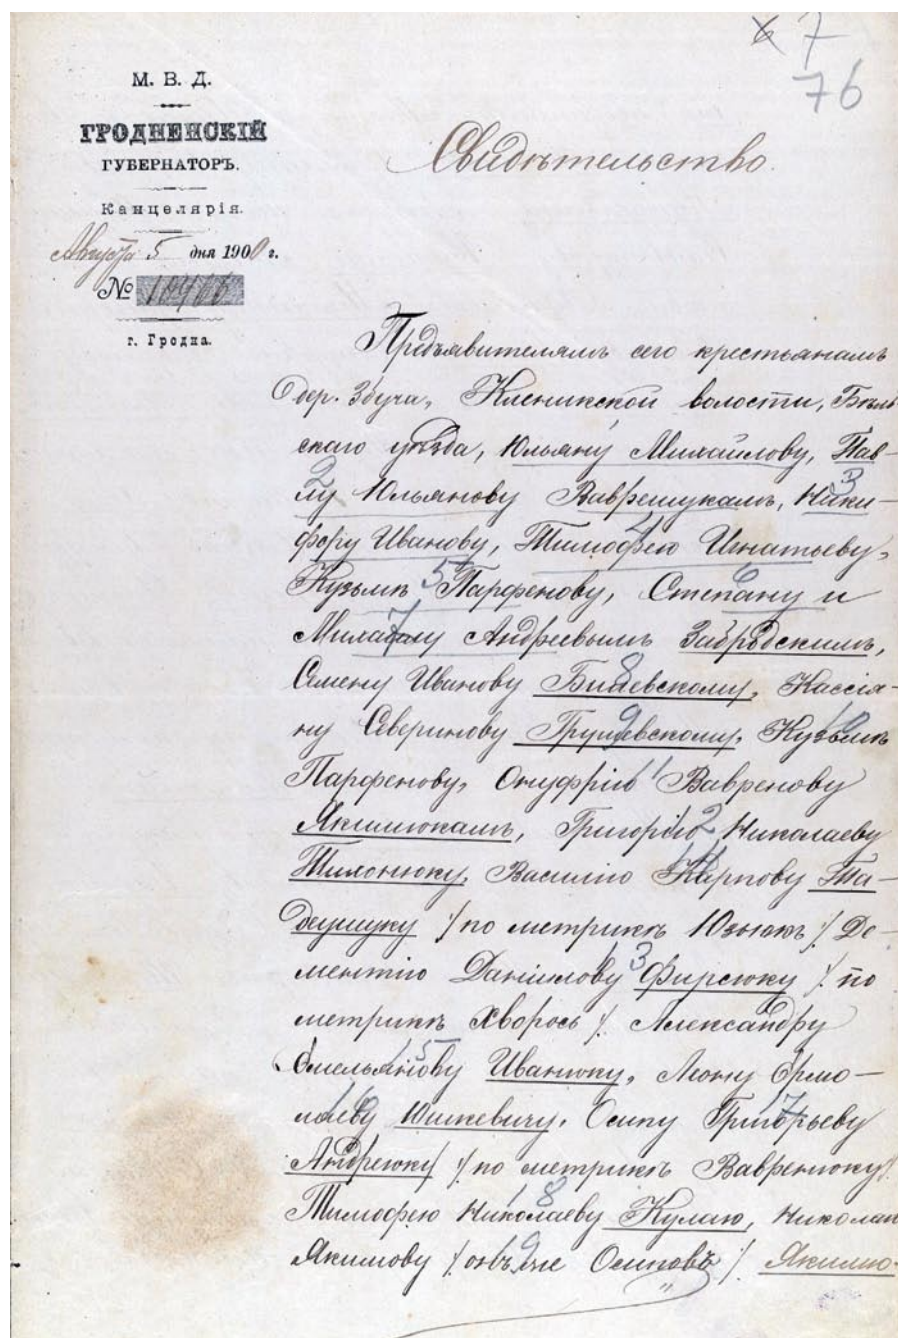 7
76
М. В. Д.
ГРОДНЕНСКІЙ
ГУБЕРНАТОРЪ.
Канцелярія.
Августа 5 дня 1900 г.
№ 10466
г. Гродна.
Свидѣтельство.
Предъявителямъ сего крестьянамъ
дер. Збуча, Клениксkой волости, Бѣль-
скаго уѣзда, Юльяну Михайлову, Пав-
лу Юльянову Ваврешукамъ, Ники-
фору Иванову, Тимофею Игнатьеву,
Кузьмѣ Парфенову, Степану и
Михаилу Андреевымъ Забродскимъ,
Семену Иванову Бишевскому, Кассія-
ну Северинову Грушевскому, Кузьмѣ
Парфенову, Онуфрію Вавренову
Якимюкамъ, Григорію Николаеву
Тихонюку, Василію Карпову Та-
деушуку /по метрикѣ Юзюкъ/ Де-
ментію Даніилову Фирсюку /по
метрикѣ Хворось/. Александру
Емельянову Иванюку, Леону Ермо-
лаеву Юшкевичу, Осипу Григорьеву
Андреюку /по метрикѣ Вавренюку/
Тимофею Николаеву Кулаю, Николаю
Якимову /онъ же Осиповъ/ Якимю-